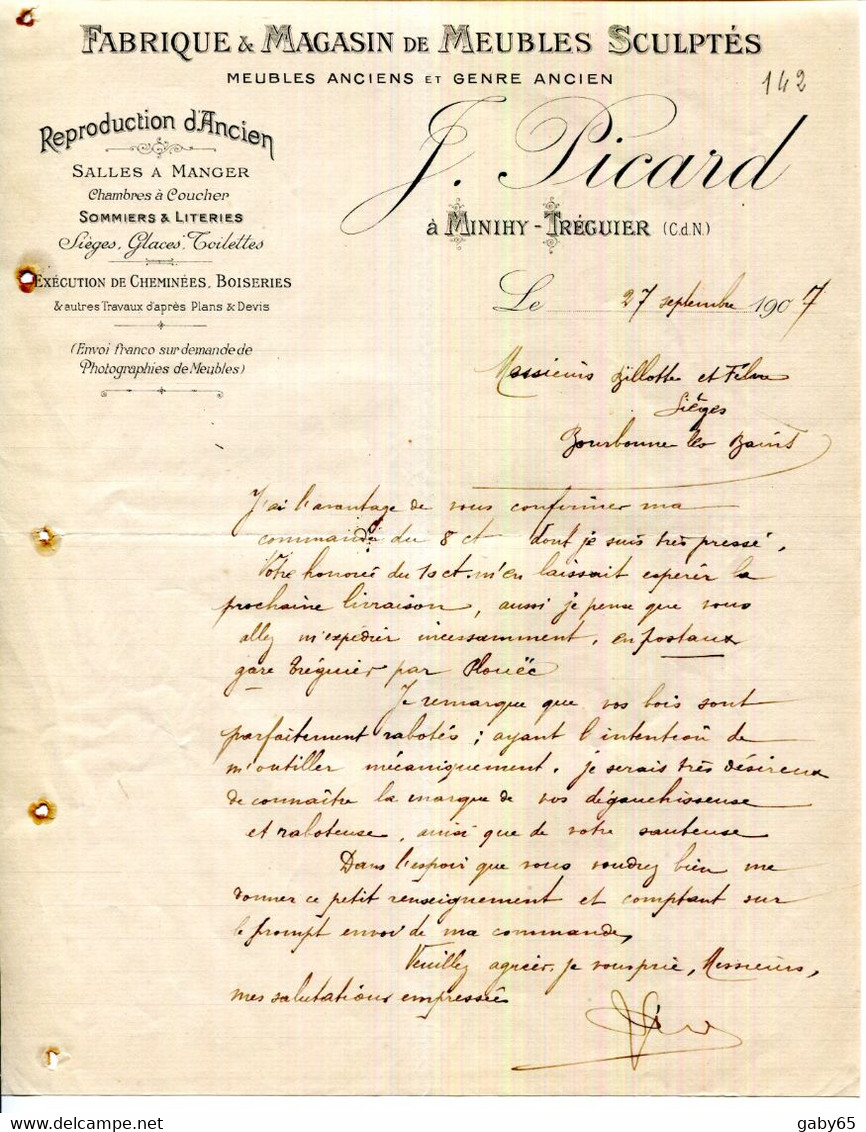 FABRIQUE & MAGASIN DE MEUBLES SCULPTÉS
MEUBLES ANCIENS ET GENRE ANCIEN
142
Reproduction d'Ancien
SALLES A MANGER
Chambres à Coucher
SOMMIERS & LITERIES
Sièges, Glaces, Toilettes
EXÉCUTION DE CHEMINÉES, BOISERIES
& autres Travaux d'après Plans & Devis
(Envoi franco sur demande de
Photographies de Meubles)
J. Picard
à MINIHY-TRÉGUIER (C.d.N.)
Le 27 septembre 1907
Messieurs et
Sièges
Bourbonne les Bains
J'ai l'avantage de vous confirmer ma
commande du 8 ct dont je suis très pressé,
Votre honorée du 10 ct. m'en laissait espérer la
prochaine livraison, aussi je pense que vous
allez m'expédier incessamment, en postaux
gare Tréguier par Plouëc
Je remarque que vos bois sont
parfaitement rabotés; ayant l'intention de
m'outiller mécaniquement, je serais très désireux
de connaître la marque de vos dégauchisseuse
et raboteuse, ainsi que de votre sauteuse
Dans l'espoir que vous voudrez bien me
donner ce petit renseignement et comptant sur
le prompt envoi de ma commande,
Veuillez agréer, je vous prie, Messieurs,
mes salutations empressées
delcampe.net
gaby65